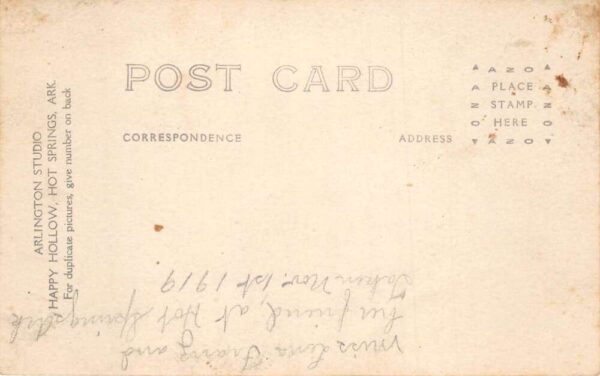 POST CARD
CORRESPONDENCE
ADDRESS
AZO
PLACE
STAMP
HERE
AZO
AZO
AZO
ARLINGTON STUDIO
HAPPY HOLLOW, HOT SPRINGS, ARK.
For duplicate pictures, give number on back
Miss Lena and
her friend, at Hot Springs Ark
Taken Nov. 1st 1919